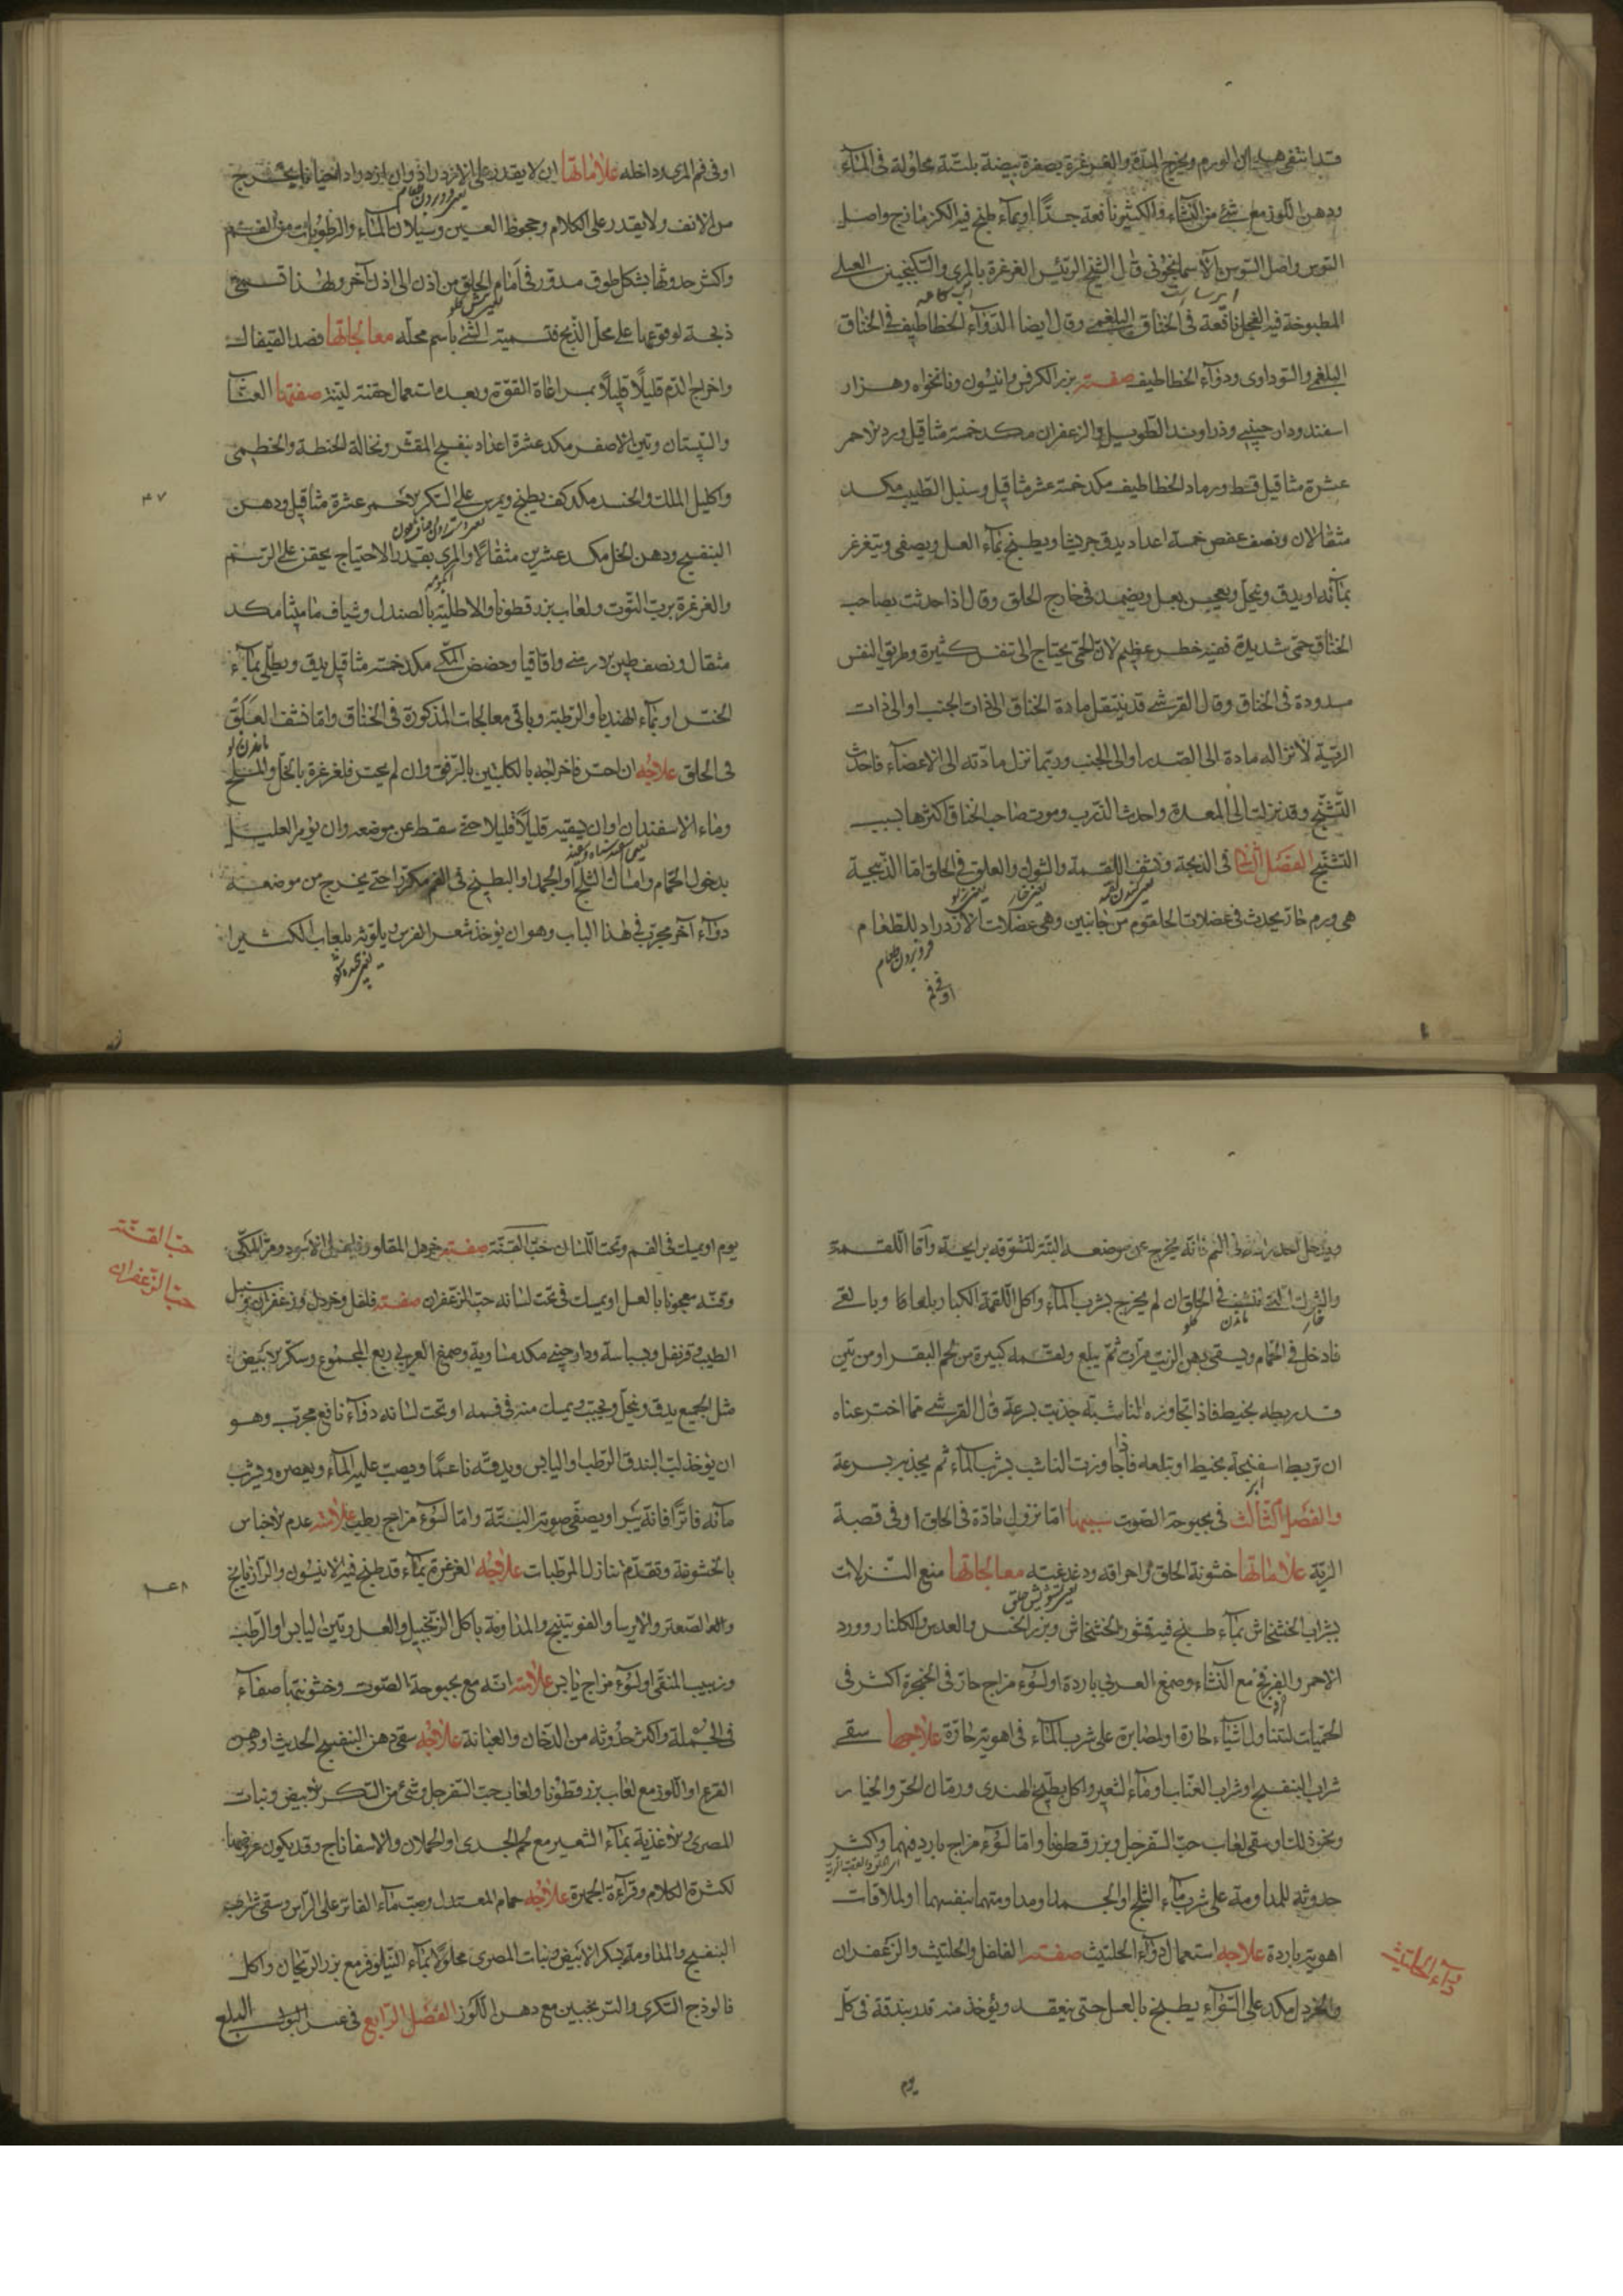 قد انتفى هذا الورم ويخرج المدة والغرغرة بصفرة بيضة بلتتة محلولة في الماء
ودهن اللوز مع شئ من النشاء والكثيرا نافعة جدًا او بماء طبخ فيه الكزمازج واصل
التوس واصل السوس الآسمانجوني قال الشيخ الرئيس الغرغرة بالمري والسكنجبين العسلي
المطبوخة فيه الفجل نافعة في الخناق البلغمي وقال ايضا الدوآء الخطاطيف في الخناق
البلغمي والسوداوي ودوآء الخطاطيف صفته بزر الكرفس وانيسون ونانخواه وهزار
اسفند ودارچيني وزراوند الطويل والزعفران مكد خمسة مثاقيل ورد الاحمر
عشرة مثاقيل قسط ورماد الخطاطيف مكد خمسة عشر مثاقيل وسنبل الطيب مكد
مثقالان ونصف عفص خمسة اعداد يدق جريشا ويطبخ بماء العسل ويصفى ويتغرغر
بمآئه او يدق وينخل ويعجن بعسل ويضمد في خارج الحلق وقال اذا حدثت بصاحب
الخناق حمى شديدة ففيه خطر عظيم لان الحمى يحتاج الى تنفس كثيرة وطريق النفس
مسدودة في الخناق وقال القرشي قد ينتقل مادة الخناق الى ذات الجنب او الى ذات
الرية لانزاله مادة الى الصدر او الى الجنب وربما نزل مادته الى الاعضآء فاحدث
التشنج وقد نزلت الى المعدة واحدث الذرب وموت صاحب الخناق اكثرها بسبب
التشنج الفصل الثاني في الذبحة ونشف اللقمة والشوك والعلق في الحلق اما الذبيحة
هي ورم حار يحدث في عضلات الحلقوم من جانبين وهي عضلات الازدراد للطعام
فرو بردن طعام
او في فم
او في فم المري وداخله علاماتها ان لا يقدر على الازدراد وان ازدراد احيانا يخرج
من الانف ولا يقدر على الكلام وجحوظ العين وسيلان الماء والرطوبات من الفم
واكثر حدوثها بشكل طوق مدور في امام الحلق من اذن الى اذن آخر ولهذا تسمى
ذبحة لوقوعها على محل الذبح فتسمية الشئ باسم محله معالجاتها فصد القيفال
واخراج الدم قليلًا قليلًا بمراعاة القوة وبعده استعمال حقنة لينة صفتها العناب
والسپستان وتين الاصفر مكد عشرة اعداد بنفسج المقشر ونخالة الحنطة والخطمي
واكليل الملك والخند مكد كف يطبخ ويمرس على السكر الاحمر عشرة مثاقيل ودهن
٤٧
البنفسج ودهن الخل مكد عشرين مثقالًا والمري بقدر الاحتياج يحقن على الرسم
والغرغرة برب التوت ولعاب بزر قطونا والاطلية بالصندل وشياف ماميثا مكد
مثقال ونصف طين ارمني واقاقيا وحضض المكي مكد خمسة مثاقيل يدق ويطلى بمآء
الخس او بمآء الهندبا والرطبة وباقي معالجات المذكورة في الخناق واما نشف العلق
في الحلق علاجه ان احس فاخراجه بالكلبتين بالرفق وان لم يحس فلغرغرة بالخل والملح
وماء الاسفندان اوان يقيه قليلًا قليلا حتى سقط عن موضعه وان يؤمر العليل
بدخول الحمام وامساك الثلج او الجمد او البطيخ في الفم مكررا حتى يخرج من موضعه
دوآء آخر مجرب في هذا الباب وهو ان يؤخذ شعر الفرس يلوثه بلعاب الكثيرا
ويدخل في الفم فانه يخرج عن موضعه البتة لتشوقه برايحة واما اللقمة
والشوك التي نشف في الحلق ان لم يخرج بشرب المآء واكل اللقمة الكبار بلعابها وبالقي
فادخل في الحمام ويسقى دهن الزيت مرآت ثم يبلع ولقمه كبيرة من لحم البقر او من تين
قد ربطه بخيط فاذا تجاوزه الناشبة جذبت بسرعة قال القرشي مما اخترعناه
ان تربط اسفنجة بخيط او تبلعه فاذا جاوزت الناشب يشرب المآء ثم يجذبه بسرعة
والفصل الثالث في بحبوحة الصوت سببها اما نزول مادة في الحلق او في قصبة
الرية علاماتها خشونة الحلق او احراقه ودغدغته معالجاتها منع النزلات
بشراب الخشخاش بمآء طبخ فيه قشور الخشخاش وبزر الخس والعدس والگلنار وورد
الاحمر والفرفخ مع النشاء وصمغ العربي باردة او لسوء مزاج حار في الحنجرة اكثر في
الحميات لتناول اشيآء حارة او لمصابرة على شرب الماء في اهوية حارة علاجها سقي
شراب البنفسج او شراب العناب او مآء الشعير واكل بطيخ الهندي ورمان الحر والخيار
وسقي لعاب حب السفرجل وبزر قطونا واما لسوء مزاج بارد فيهما واكثر
حدوثه للمداومة على شرب مآء الثلج او الجمد او مداومتهما بنفسهما او لملاقات
اهوية باردة علاجه استعمال دوآء الحلتيث صفته الفلفل والحلتيث والزعفران
دوآء الحلتيث
والخردل مكد على السوآء يطبخ بالعسل حتى ينعقد ويؤخذ منه قدر بندقة في كل
يوم
يوم او يمسك في الفم وتحت اللسان حب القنة صفته خردل المقلو وفلفل الاسود ومر المكي
حب القنة
وقنه معجونا بالعسل او يمسك في تحت لسانه حب الزعفران صفته فلفل وخردل وزعفران وسنبل
حب الزعفران
الطيب وقرنفل وبسباسة ودارچيني مكد مساوية وصمغ العربي ربع المجموع وسكر الابيض
مثل الجميع يدق وينخل ويحبب ويمسك منه في فمه او تحت لسانه دوآء نافع مجرب وهو
ان يؤخذ لب البندق الرطب او اليابس ويدقه ناعما ويصب عليه المآء ويعصره ويشرب
مآئه فاترًا فانه يبرا ويصفى صوته البتة واما لسوء مزاج رطب علامته عدم الاحباس
بالخشونة وتقدم تنازل المرطبات علاجه الغرغرة بمآء قد طبخ فيه الانيسون والرازيانج
والصعتر والايرسا والفوتينج والمداومة باكل الزنجبيل والعسل وتين اليابس او الرطب
وزبيب المنقى او لسوء مزاج يابس علامته انه مع بحبوحة الصوت وخشونتها صفآء
في الجملة واكثر حدوثه من الدخان والغبانة علاجه سقي دهن البنفسج الحديث او دهن
القرع او اللوز مع لعاب بزر قطونا ولعاب حب السفرجل وشئ من السكر الابيض ونبات
المصري والاغذية بمآء الشعير مع لحم الجدي او الحملان والاسفاناج وقد يكون عروضها
لكثرة الكلام وقرآءة الجهرة علاجه حمام المعتدل وصب مآء الفاتر على الرأس وسقي شراب
البنفسج والمداومة بسكر الابيض ونبات المصري محلولًا بمآء النيلوفر مع بزر الريحان واكل
فالوذج السكري والترنجبين مع دهن اللوز الفصل الرابع في عسر البلع